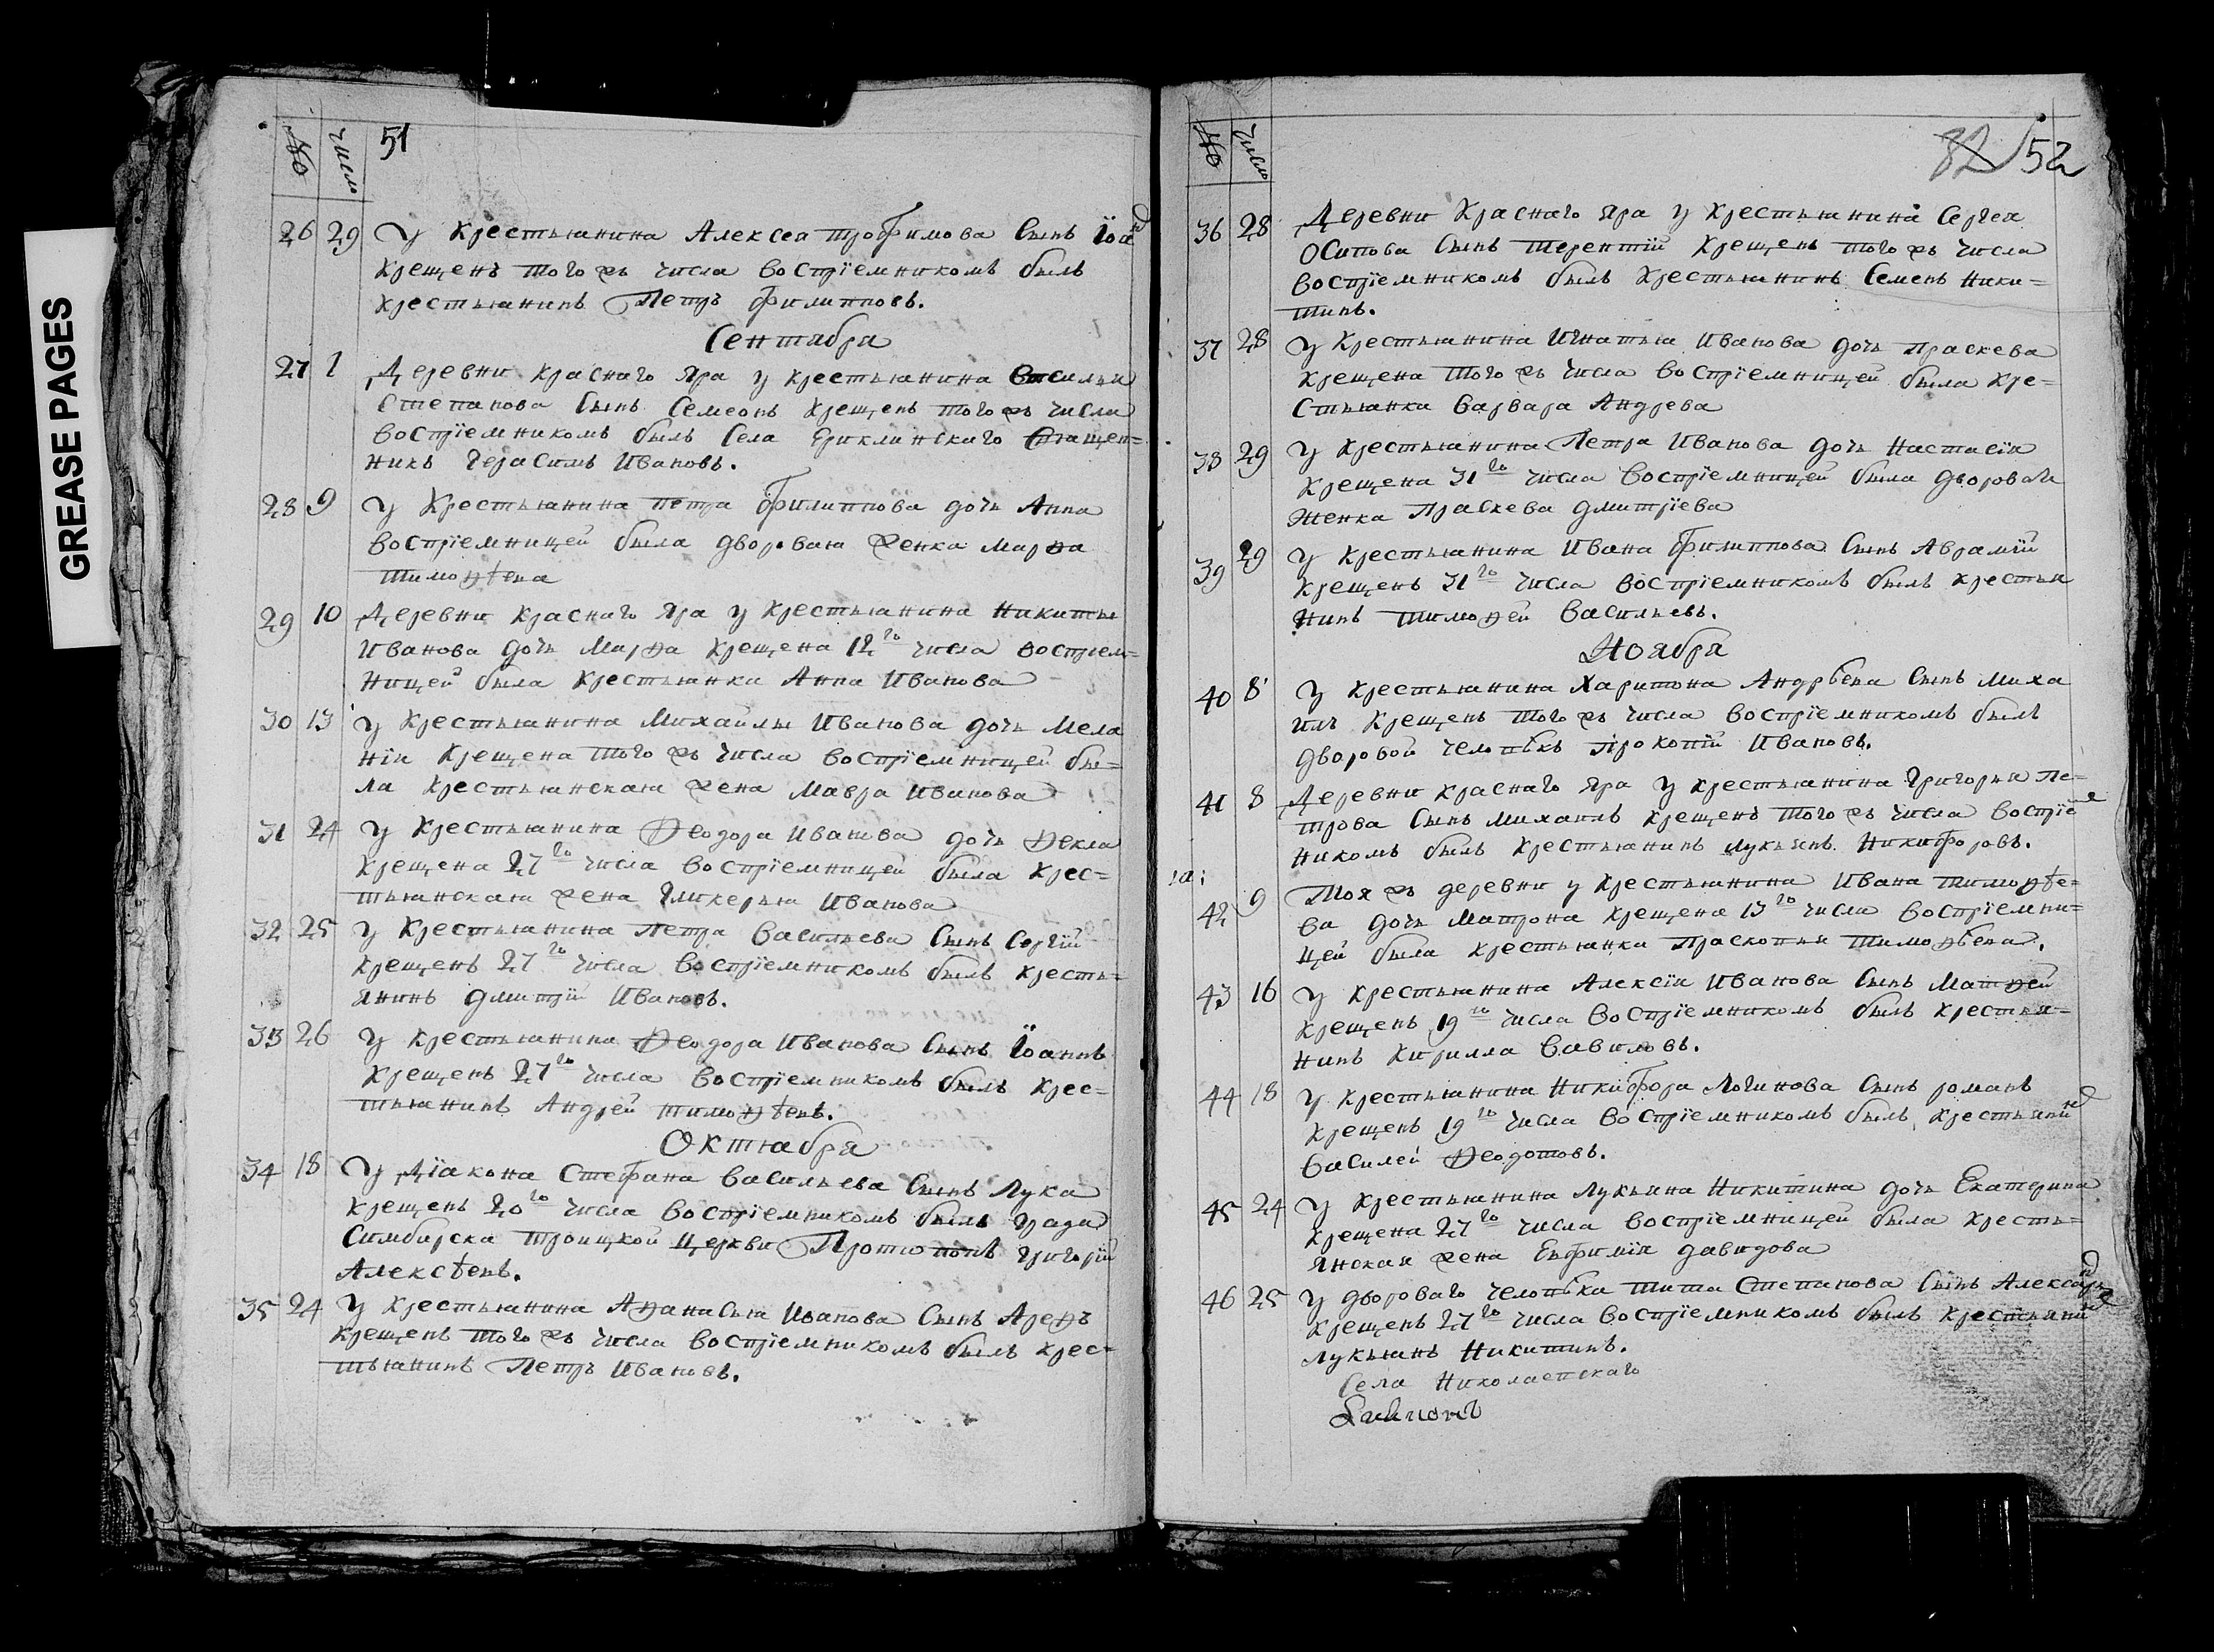 GREASE PAGES
№ число 51
26 29 У крестьянина Алексея трофимова сынъ Іоан
крещенъ того жъ числа воспріемникомъ былъ
крестьянинъ Петръ филипповъ.
Сентября
27 1 Деревни краснаго Яра у крестьянина Василья
Степанова сынъ Семеонъ крещенъ того жъ числа
воспріемникомъ былъ села Ериклинскаго священ=
никъ Герасимъ Ивановъ.
28 9 У крестьянина петра филиппова дочь Анна
воспріемницей была дворовая женка марѳа
тимоѳѣева
29 10 Деревни краснаго Яра у крестьянина Никиты
Иванова дочь Марѳа крещена 12го числа воспріем=
ницей была крестьянка Анна Иванова
30 13 у крестьянина Михайлы Иванова дочь Мела
нія крещена того жъ числа воспріемницей бы=
ла крестьянская жена Мавра Иванова
31 24 У крестьянина Ѳеодора Иванова дочь Ѳекла
крещена 27го числа воспріемницей была крес=
тьянская жена Гликерья Иванова
32 25 У крестьянина Петра Васильева сынъ Сергій
крещенъ 27го числа воспріемникомъ былъ кресть=
янинъ дмитрій Ивановъ.
33 26 У крестьянина Ѳеодора Иванова сынъ Іоаннъ
крещенъ 27го числа воспріемникомъ былъ крес=
тьянинъ Андрей тимоѳѣевъ.
Октября
34 18 У Діакона Стефана Васильева сынъ Лука
крещенъ 20го числа воспріемникомъ былъ града
Симбирска троицкой церкви Протопопъ Григорій
Алексѣевъ.
35 24 У крестьянина Аѳанасья Иванова сынъ Ареѳъ
крещенъ того жъ числа воспріемникомъ былъ крес=
тьянинъ Петръ Ивановъ.
№ число 82 52
36 28 Деревни краснаго Яра у крестьянина Сергея
Осипова сынъ терентій крещенъ того жъ числа
воспріемникомъ былъ крестьянинъ Семенъ Ники=
тинъ.
37 28 У крестьянина Игнатья Иванова дочь праскева
крещена того жъ числа воспріемницей была кре=
стьянка Варвара Андрева
38 29 У крестьянина Петра Иванова дочь Настасія
крещена 31го числа воспріемницей была дворовая
женка праскева дмитріева
39 29 У крестьянина Ивана филиппова сынъ Аврамій
крещенъ 31го числа воспріемникомъ былъ крестья
нинъ тимоѳей Васильевъ.
Ноября
40 8 У крестьянина Харитона Андрѣева сынъ миха
илъ крещенъ того жъ числа воспріемникомъ былъ
дворовой человѣкъ прокопій Ивановъ.
41 8 Деревни краснаго Яра у крестьянина григорья пе=
трова сынъ михаилъ крещенъ того жъ числа воспріем
никомъ былъ крестьянинъ лукьянъ Никифоровъ.
42 9 Той жъ деревни у крестьянина Ивана тимоѳѣе=
ва дочь матрона крещена 13го числа воспріемни=
цей была крестьянка прасковья тимоѳѣева.
43 16 У крестьянина Алексія Иванова сынъ матѳей
крещенъ 19го числа воспріемникомъ былъ крестья=
нинъ кирилла Вавиловъ.
44 18 У крестьянина Никифора Логинова сынъ романъ
крещенъ 19го числа воспріемникомъ былъ крестьянин
Василей Ѳеодотовъ.
45 24 У крестьянина лукьяна Никитина дочь Екатерина
крещена 27го числа воспріемницей была кресть=
янская жена Евфимія давидова
46 25 У двороваго человѣка тита Степанова сынъ Александр
крещенъ 27го числа воспріемникомъ былъ крестьянин
лукьянъ Никитинъ.
Села Николаевскаго